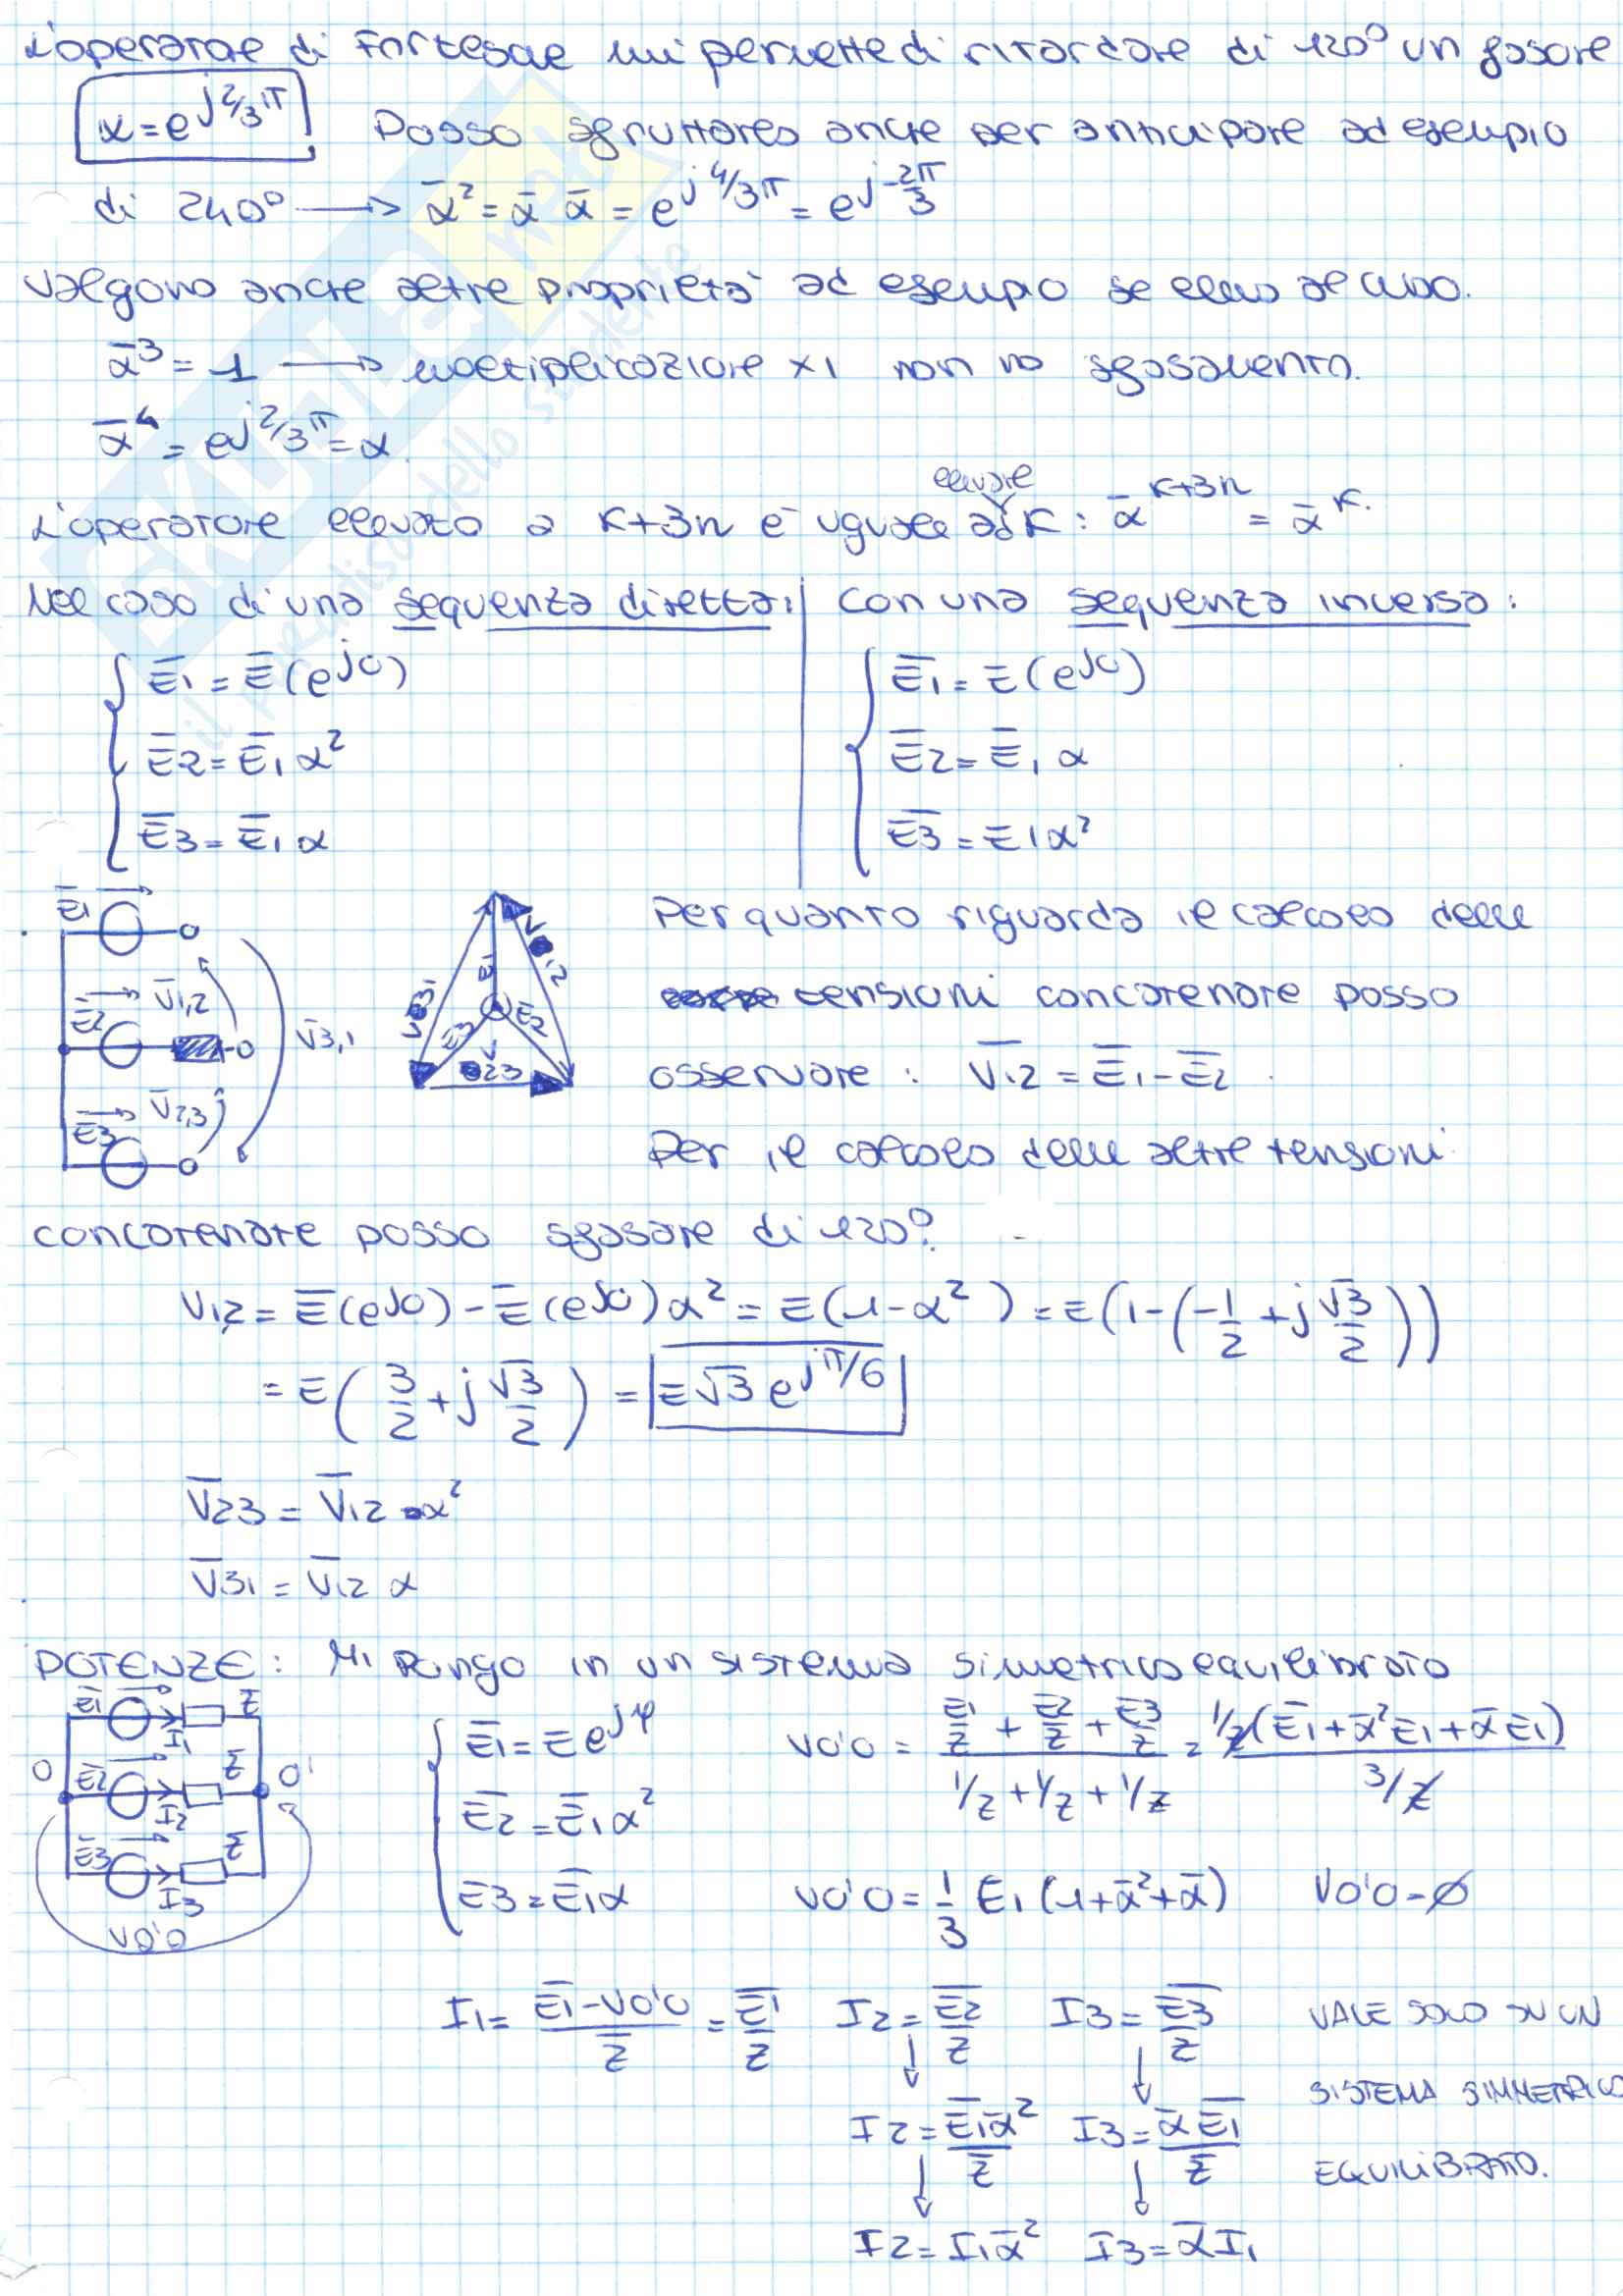 L'operatore di Fortescue mi permette di ritardare di 120° un fasore
α=e^{j2/3π} Posso sfruttarlo anche per anticipare ad esempio
di 240° → ᾱ² = ᾱ ᾱ = e^{j4/3π} = e^{j-2π/3}
Valgono anche altre proprietà ad esempio se elevo al cubo.
ᾱ³ = 1 → moltiplicazione x1 non ho sfasamento.
ᾱ⁴ = e^{j2/3π} = α.
elevare
L'operatore elevato a K+3n è uguale ad K: ᾱ^{K+3n} = ᾱ^{K}.
Nel caso di una sequenza diretta:
Ē1 = Ē(e^{j0})
Ē2 = Ē1 α²
Ē3 = Ē1 α
Con una sequenza inversa:
Ē1 = E(e^{j0})
Ē2 = Ē1 α
Ē3 = E1 α²
Ē1
Ē2 V̄1,2
V̄3,1
Ē3 V̄2,3
E1 E2 E3 V12 V23 V31
Per quanto riguarda il calcolo delle
tensioni concatenate posso
osservare: V̄12 = Ē1 - Ē2.
Per il calcolo delle altre tensioni
concatenate posso sfasare di 120°.
V12 = Ē(e^{j0}) - Ē(e^{j0})α² = E(1-α²) = E(1-(-1/2 + j√3/2))
= E(3/2 + j√3/2) = E√3 e^{jπ/6}
V̄23 = V̄12 α²
V̄31 = V̄12 α
POTENZE: Mi pongo in un sistema simetrico equilibrato
Ē1 I1 Z̄
O Ē2 I2 Z̄ O'
Ē3 I3 Z̄
VO'O
Ē1 = E e^{jφ}
Ē2 = Ē1 α²
Ē3 = Ē1 α
VO'O = (Ē1/Z̄ + Ē2/Z̄ + Ē3/Z̄)/(1/Z + 1/Z + 1/Z) = 1/Z(Ē1 + ᾱ²E1 + ᾱE1)/(3/Z)
VO'O = 1/3 E1 (1+ᾱ²+ᾱ) VO'O = 0
I1 = (Ē1 - VO'O)/Z̄ = Ē1/Z̄ I2 = Ē2/Z̄ I3 = Ē3/Z̄ VALE SOLO SU UN
SISTEMA SIMMETRICO
I2 = Ē1ᾱ²/Z̄ I3 = ᾱĒ1/Z̄
EQUILIBRATO.
I2 = I1ᾱ² Ī3 = ᾱI1
SKUOLA.net
il paradiso dello studente